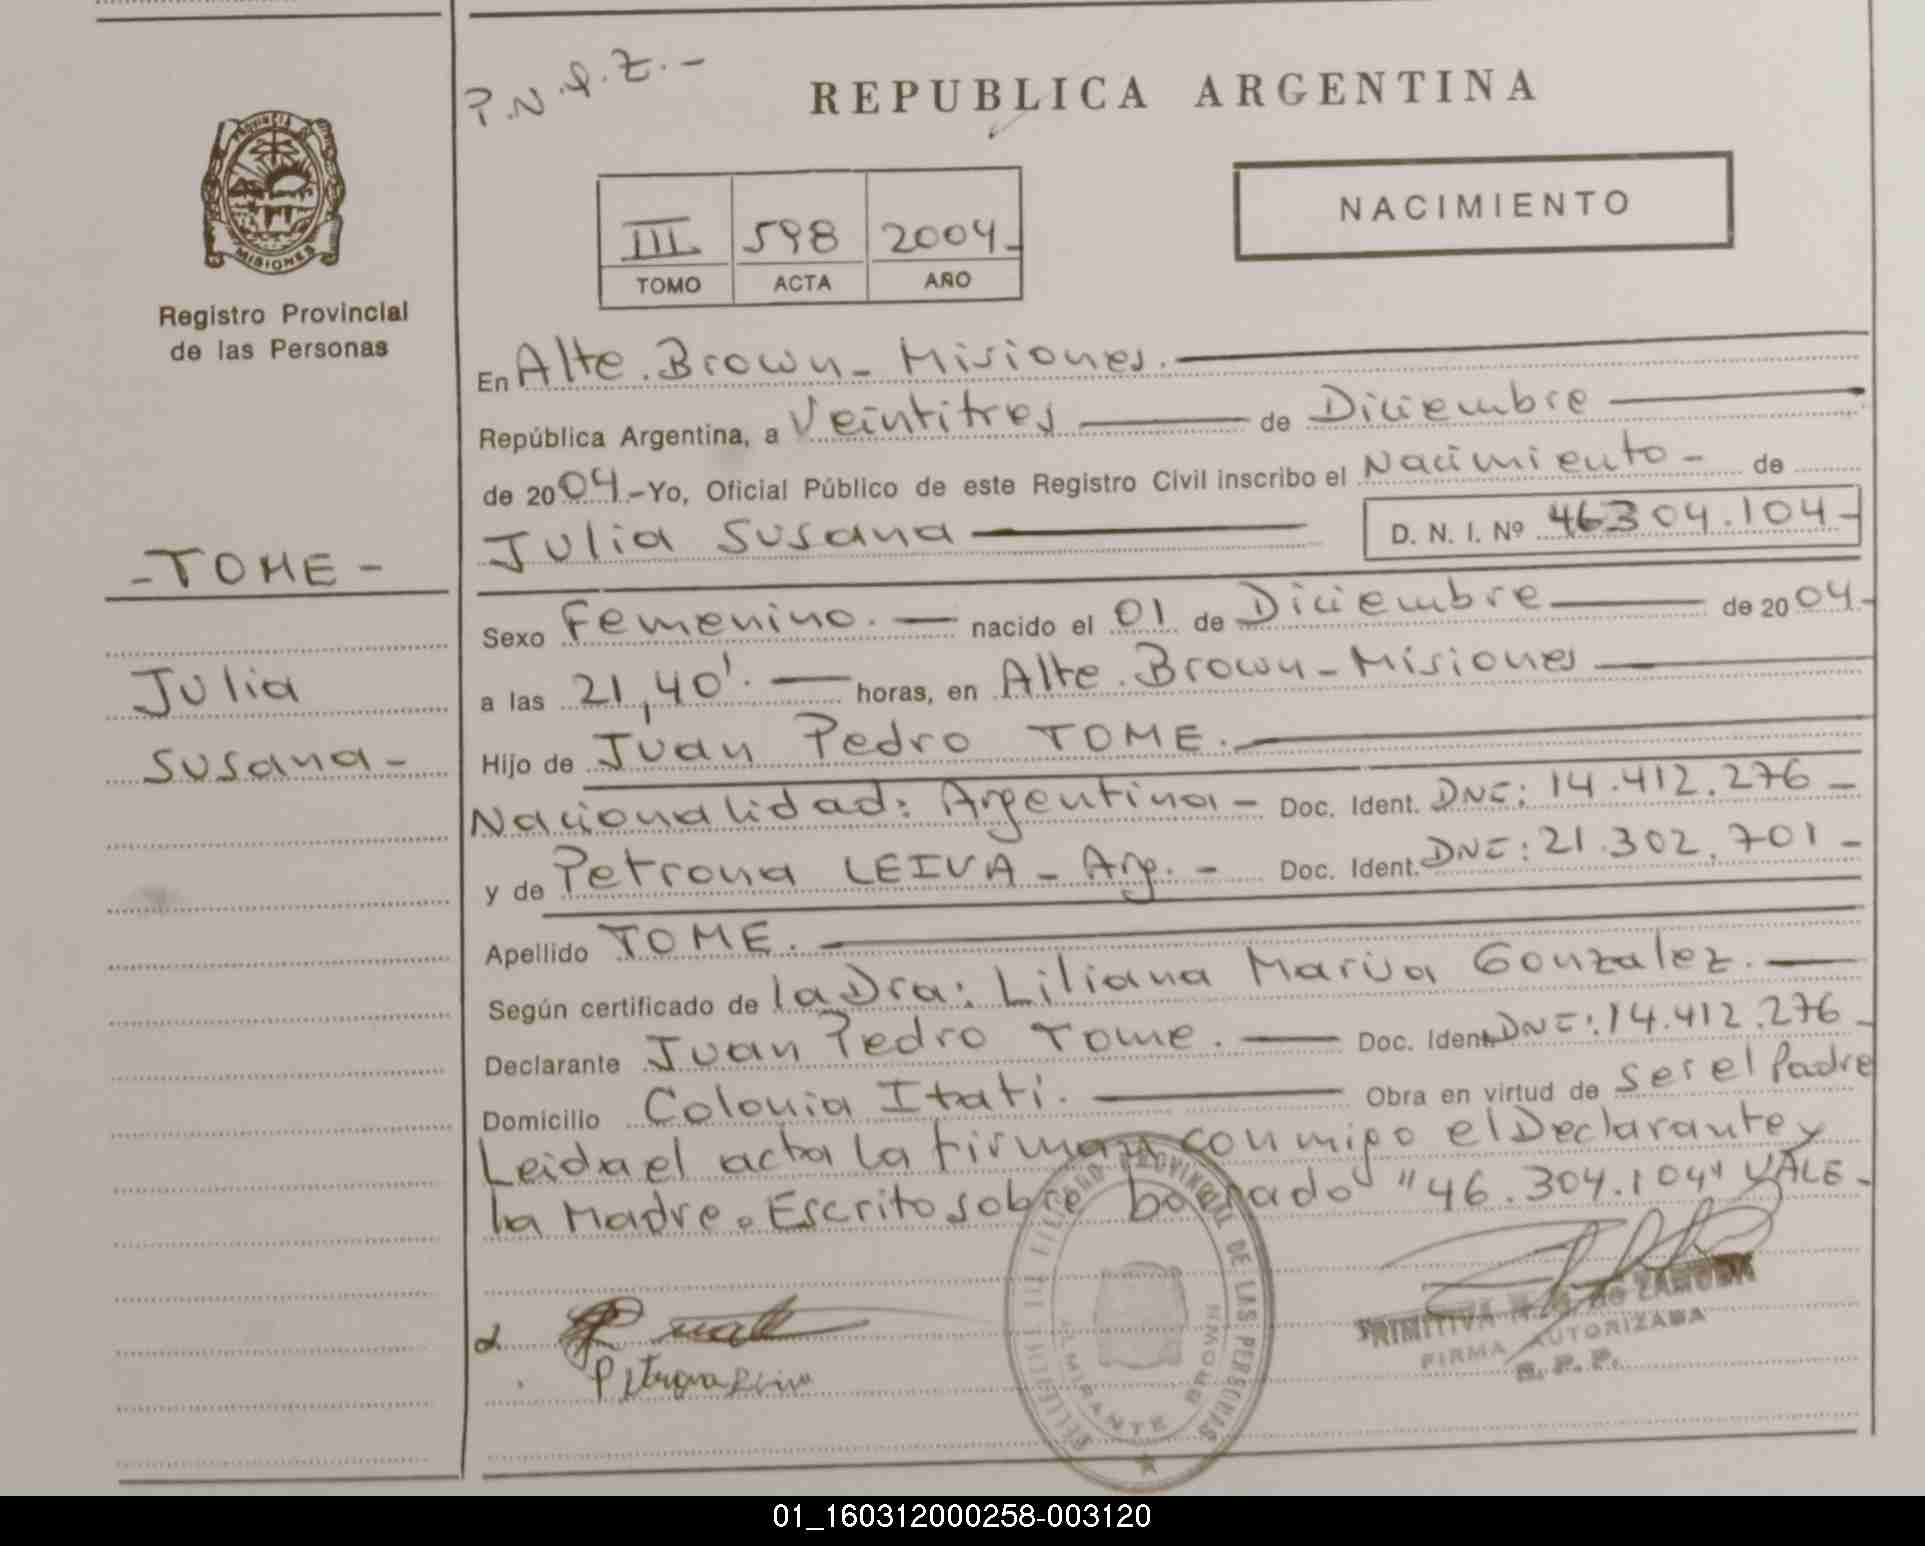 P.N.Q.Z.-
REPUBLICA ARGENTINA
PROVINCIA DE
MISIONES
Registro Provincial
de las Personas
III 598 2004-
TOMO ACTA AÑO
NACIMIENTO
-TOME-
Julia
Susana-
En Alte. Brown - Misiones.
República Argentina, a Veintitres de Diciembre
de 2004.- Yo, Oficial Público de este Registro Civil inscribo el Nacimiento - de
Julia Susana D. N. I. Nº 46304.104-
Sexo Femenino. nacido el 01 de Diciembre de 2004.-
a las 21,40'. horas, en Alte. Brown - Misiones
Hijo de Juan Pedro TOME.
Nacionalidad: Argentina - Doc. Ident. DNI: 14.412.276 -
y de Petrona LEIVA - Arg. - Doc. Ident. DNI: 21.302.701 -
Apellido TOME.
Según certificado de la Dra: Liliana Marisa Gonzalez.
Declarante Juan Pedro Tome. Doc. Ident. DNI: 14.412.276 -
Domicilio Colonia Itati. Obra en virtud de ser el Padre
Leida el acta la firman conmigo el Declarante y
la Madre. Escrito sobre borrado "46.304.104" VALE -
PROVINCIAL DE LAS PERSONAS
ALMIRANTE BROWN
PRIMITIVA
FIRMA AUTORIZADA
R. P. P.
Petrona Leiva
01_160312000258-003120